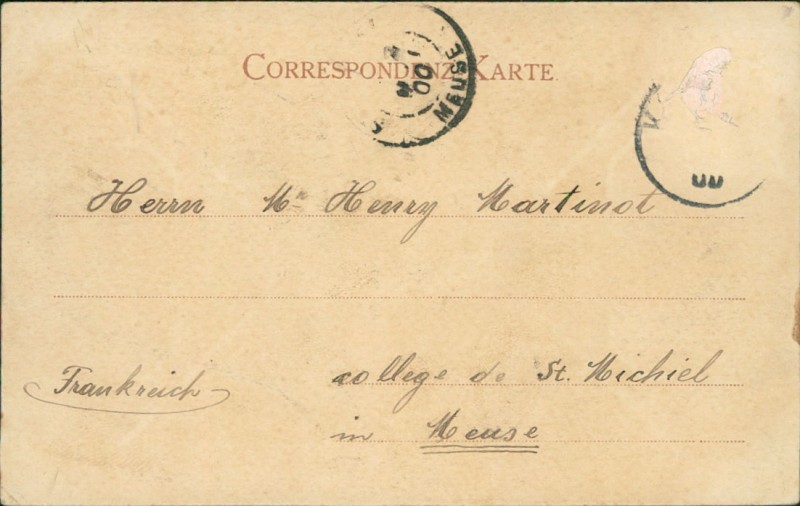 CORRESPONDENZ-KARTE.
MEUSE
00
00
Herrn Mr Henry Martinot
Frankreich
college de St. Michiel
in Meuse